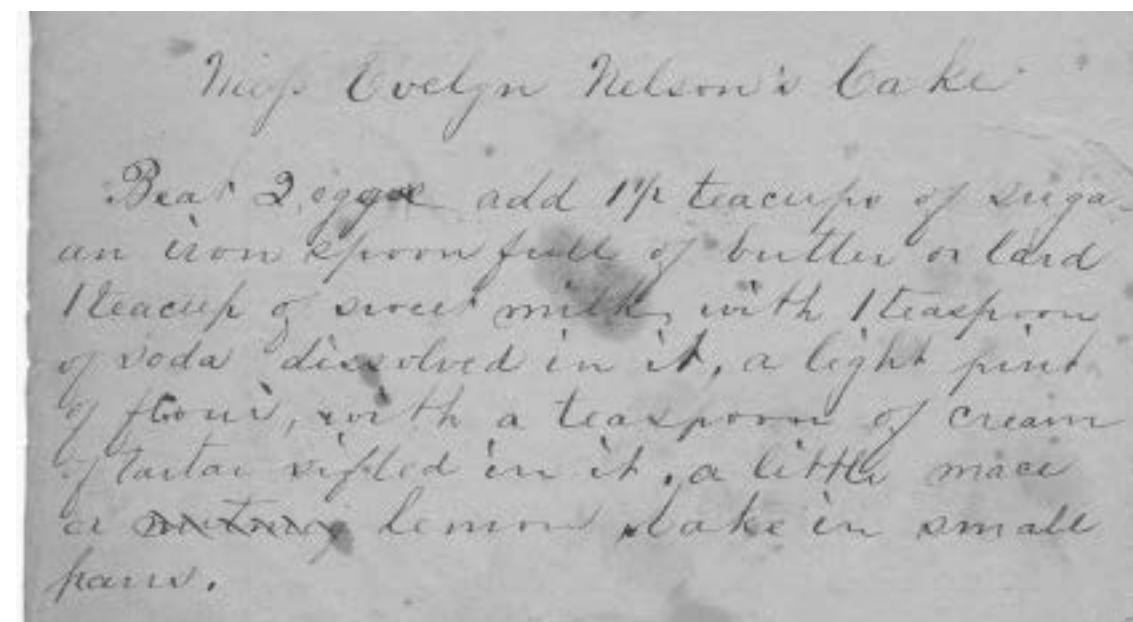 Miss Evelyn Nelson's Cake
Beat 2 eggs add 1½ teacups of sugar
an iron spoon full of butter or lard
1 teacup of sweet milk, with 1 teaspoon
of soda dissolved in it, a light pint
of flour, with a teaspoon of cream
of tartar sifted in it, a little mace
or lemon bake in small
pans.